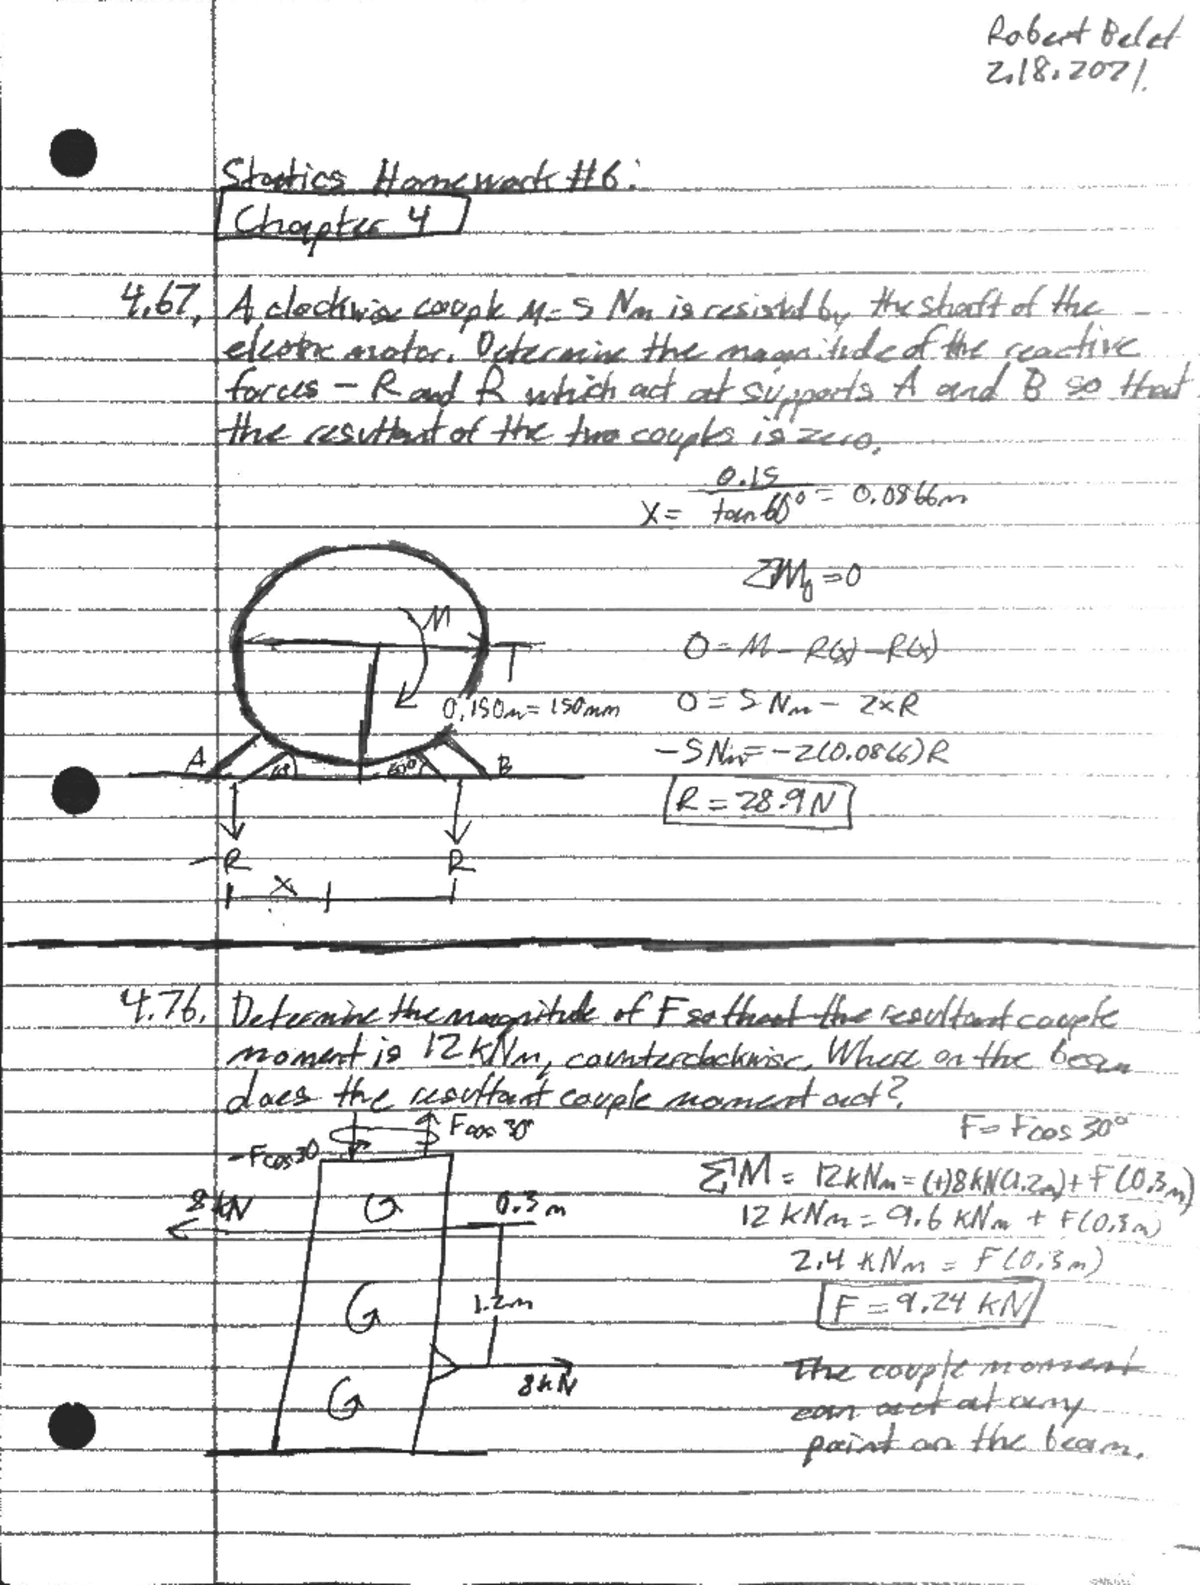 Robert Belet
2.18.2021.
Statics Homework #6:
Chapter 4
4.67. A clockwise couple M=5 Nm is resisted by the shaft of the
electric motor. Determine the magnitude of the reactive
forces - R and R which act at supports A and B so that
the resultant of the two couples is zero.
X = 0.15 / tan 60° = 0.0866m
ΣM0 = 0
M
0 = M - R(x) - R(x)
0.150m = 150mm
0 = 5 Nm - 2xR
-5 Nm = -2(0.0866)R
A 60° 60° B
R = 28.9N
-R R
X
4.76. Determine the magnitude of F so that the resultant couple
moment is 12 kNm, counterclockwise. Where on the beam
does the resultant couple moment act?
-Fcos30 Fcos 30°
F = Fcos 30°
ΣM = 12kNm = (+)8kN(1.2m) + F(0.3m)
8kN 0.3m
12 kNm = 9.6 kNm + F(0.3m)
2.4 kNm = F(0.3m)
1.2m
F = 9.24 kN
8kN
The couple moment
can act at any
point on the beam.